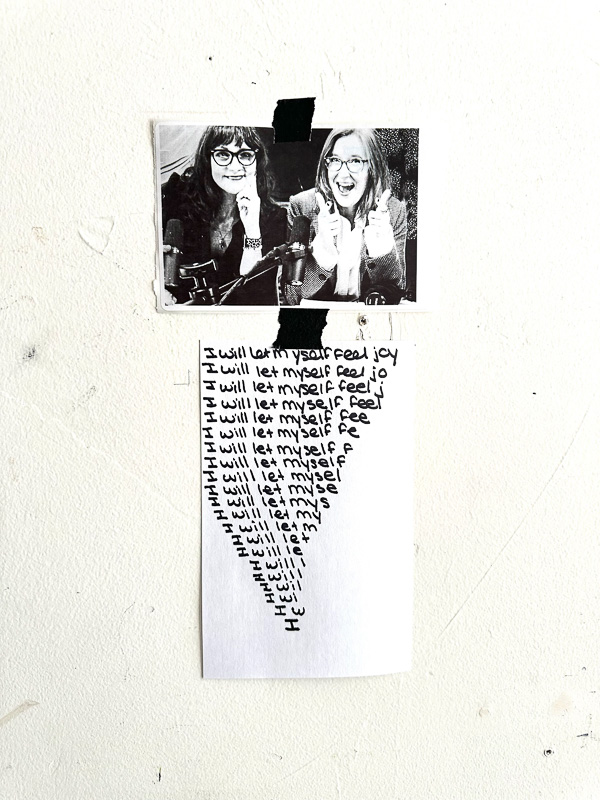 I will let myself feel joy
I will let myself feel jo
I will let myself feel j
I will let myself feel
I will let myself fee
I will let myself fe
I will let myself f
I will let myself
I will let mysel
I will let myse
I will let mys
I will let my
I will let m
I will let
I will le
I will l
I will
I wil
I wi
I w
I